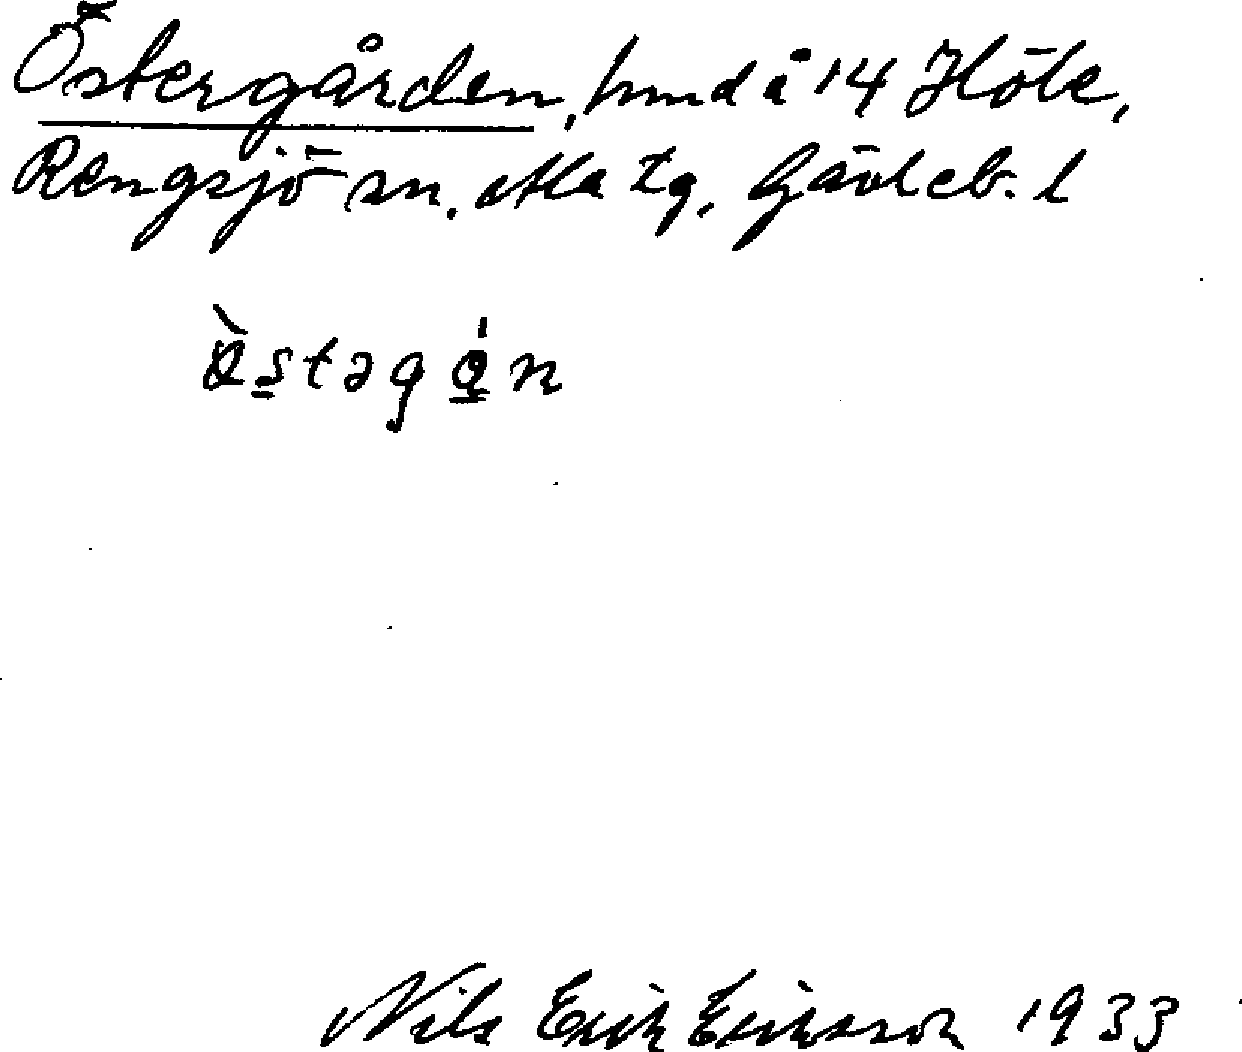 Östergården, hmd å 14 Höle,
Rengsjö sn. Ala tg, Gävleb. l
Nils Erik Eriksson 1933